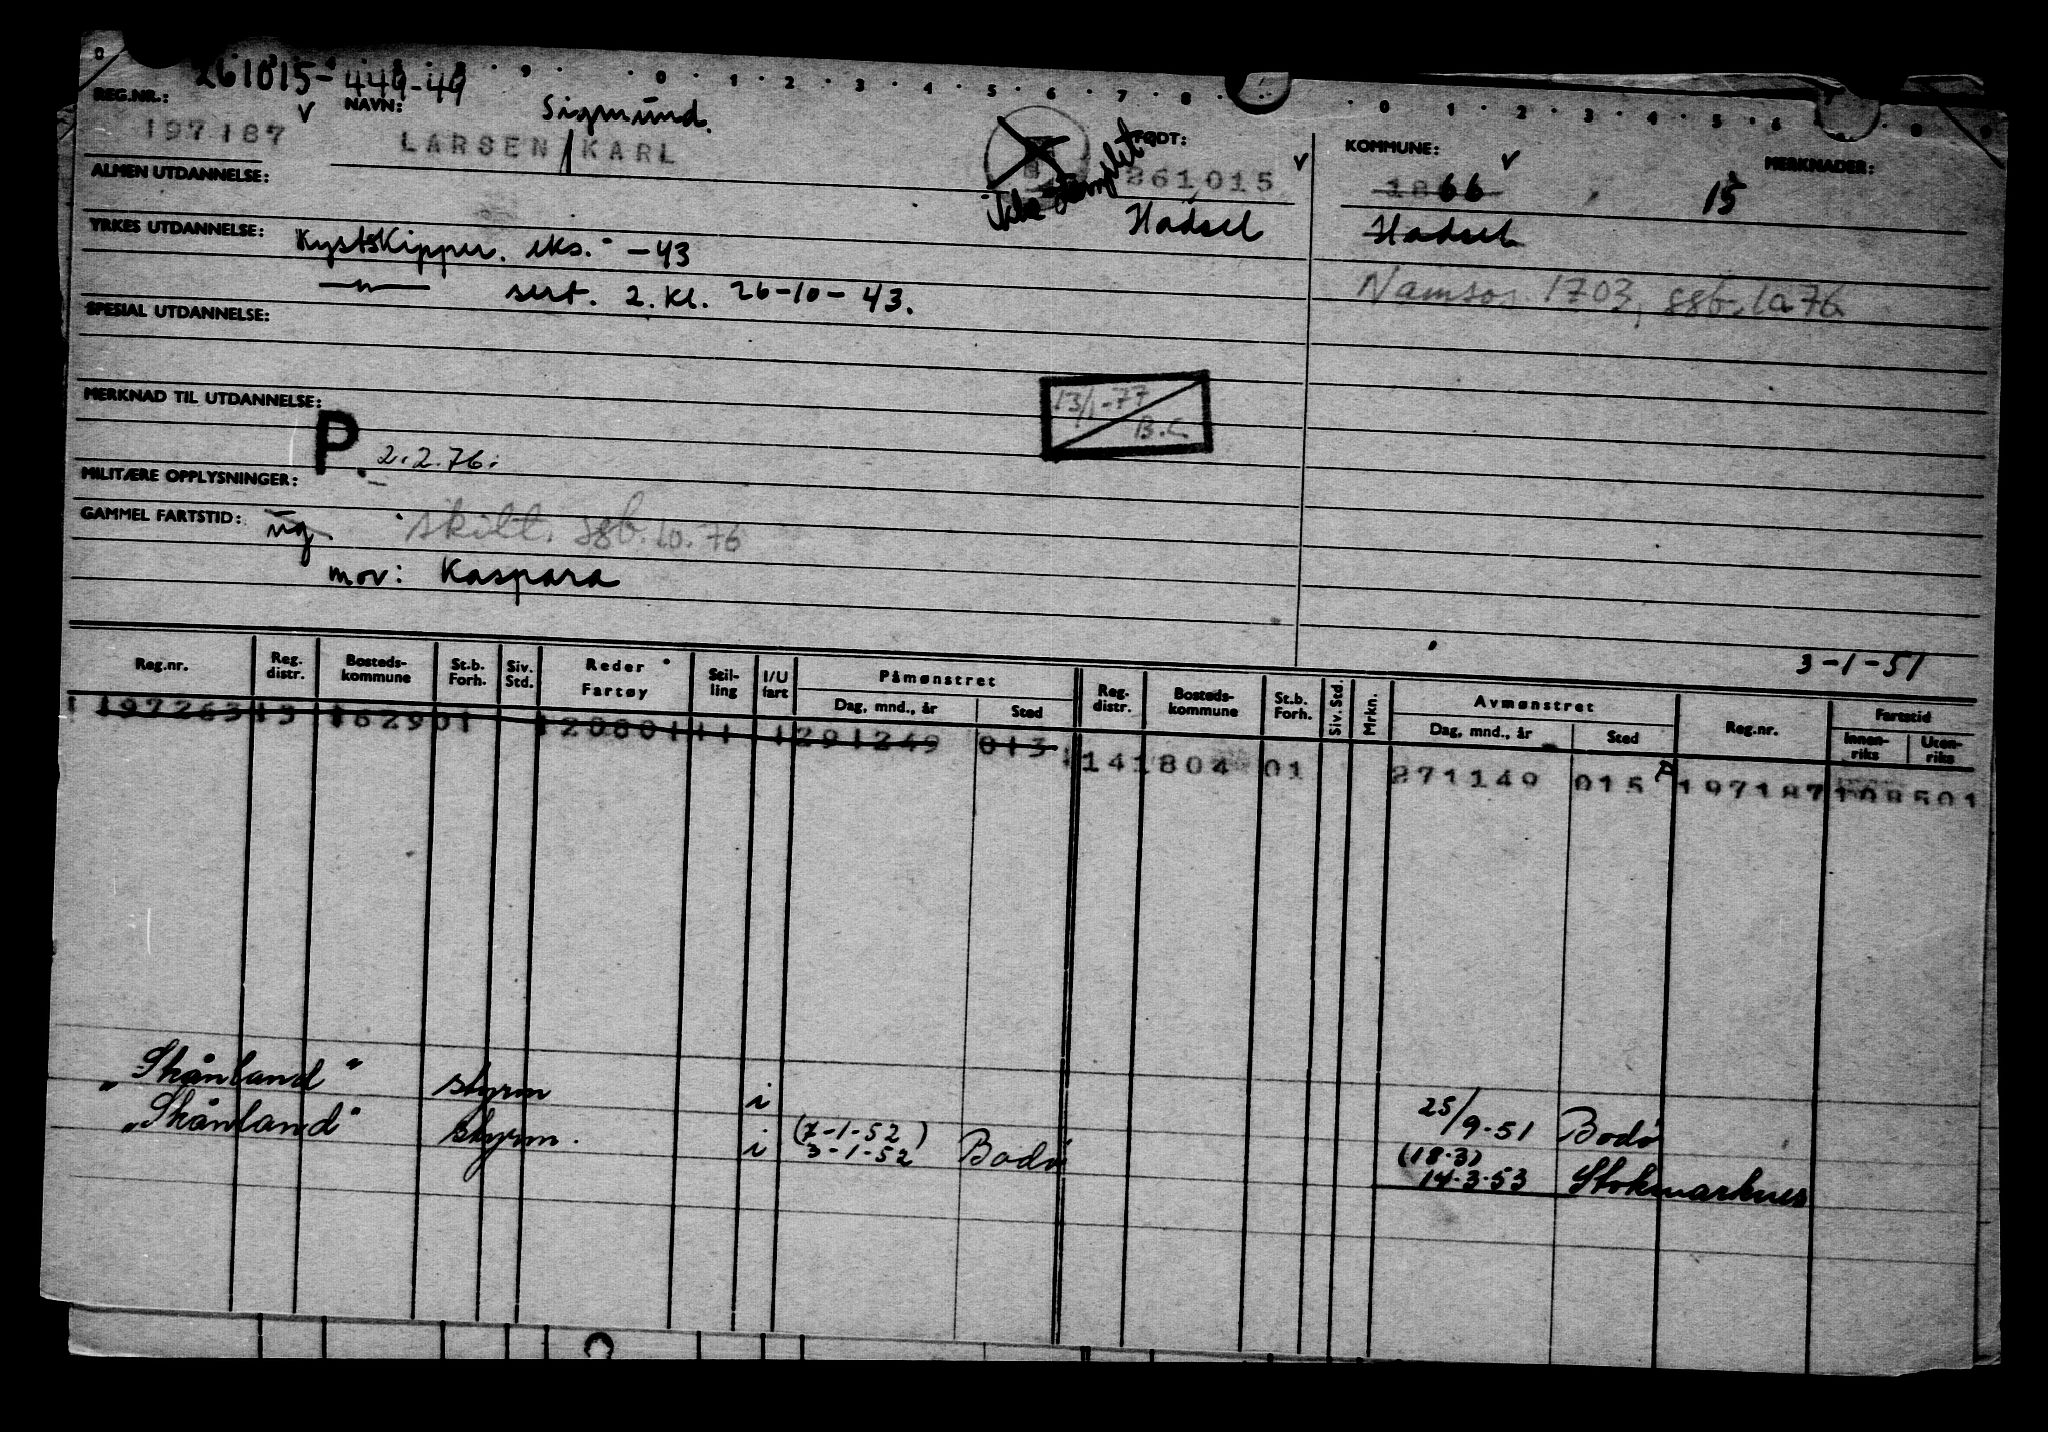 261015-449-49
REG.NR.: NAVN: Sigmund. FØDT: KOMMUNE: MERKNADER:
197187 LARSEN KARL 261015 1866 15
ALMEN UTDANNELSE: Ikke stemplet Hadsel Hadsel
YRKES UTDANNELSE: Kystskipper. eks. -43
sert. 2. kl. 26-10-43. Namsos 1703, sgb. 10 76
SPESIAL UTDANNELSE:
MERKNAD TIL UTDANNELSE: 13/1-77
B.L.
P. 2.2.76.
MILITÆRE OPPLYSNINGER:
GAMMEL FARTSTID: ug skilt. sgb. 10. 76
mov: Kaspara
3-1-51
Reg.nr. Reg. distr. Bosteds-kommune St.b. Forh. Siv. Std. Reder Fartøy Stil-ling I/U fart Påmønstret Dag, mnd., år Sted Reg. distr. Bosteds-kommune St.b. Forh. Siv. Std. Mrkn. Avmønstret Dag, mnd., år Sted Reg.nr. Fartstid Innen-riks Uten-riks
197263 13 1629 01 120801 11 1 291249 013 14 1804 01 271149 015 197187 108501
"Skånland" styrm i 25/9-51 Bodø
"Skånland" styrm. i (7-1-52) 3-1-52 Bodø (18.3) 14.3.53 Stokmarknes